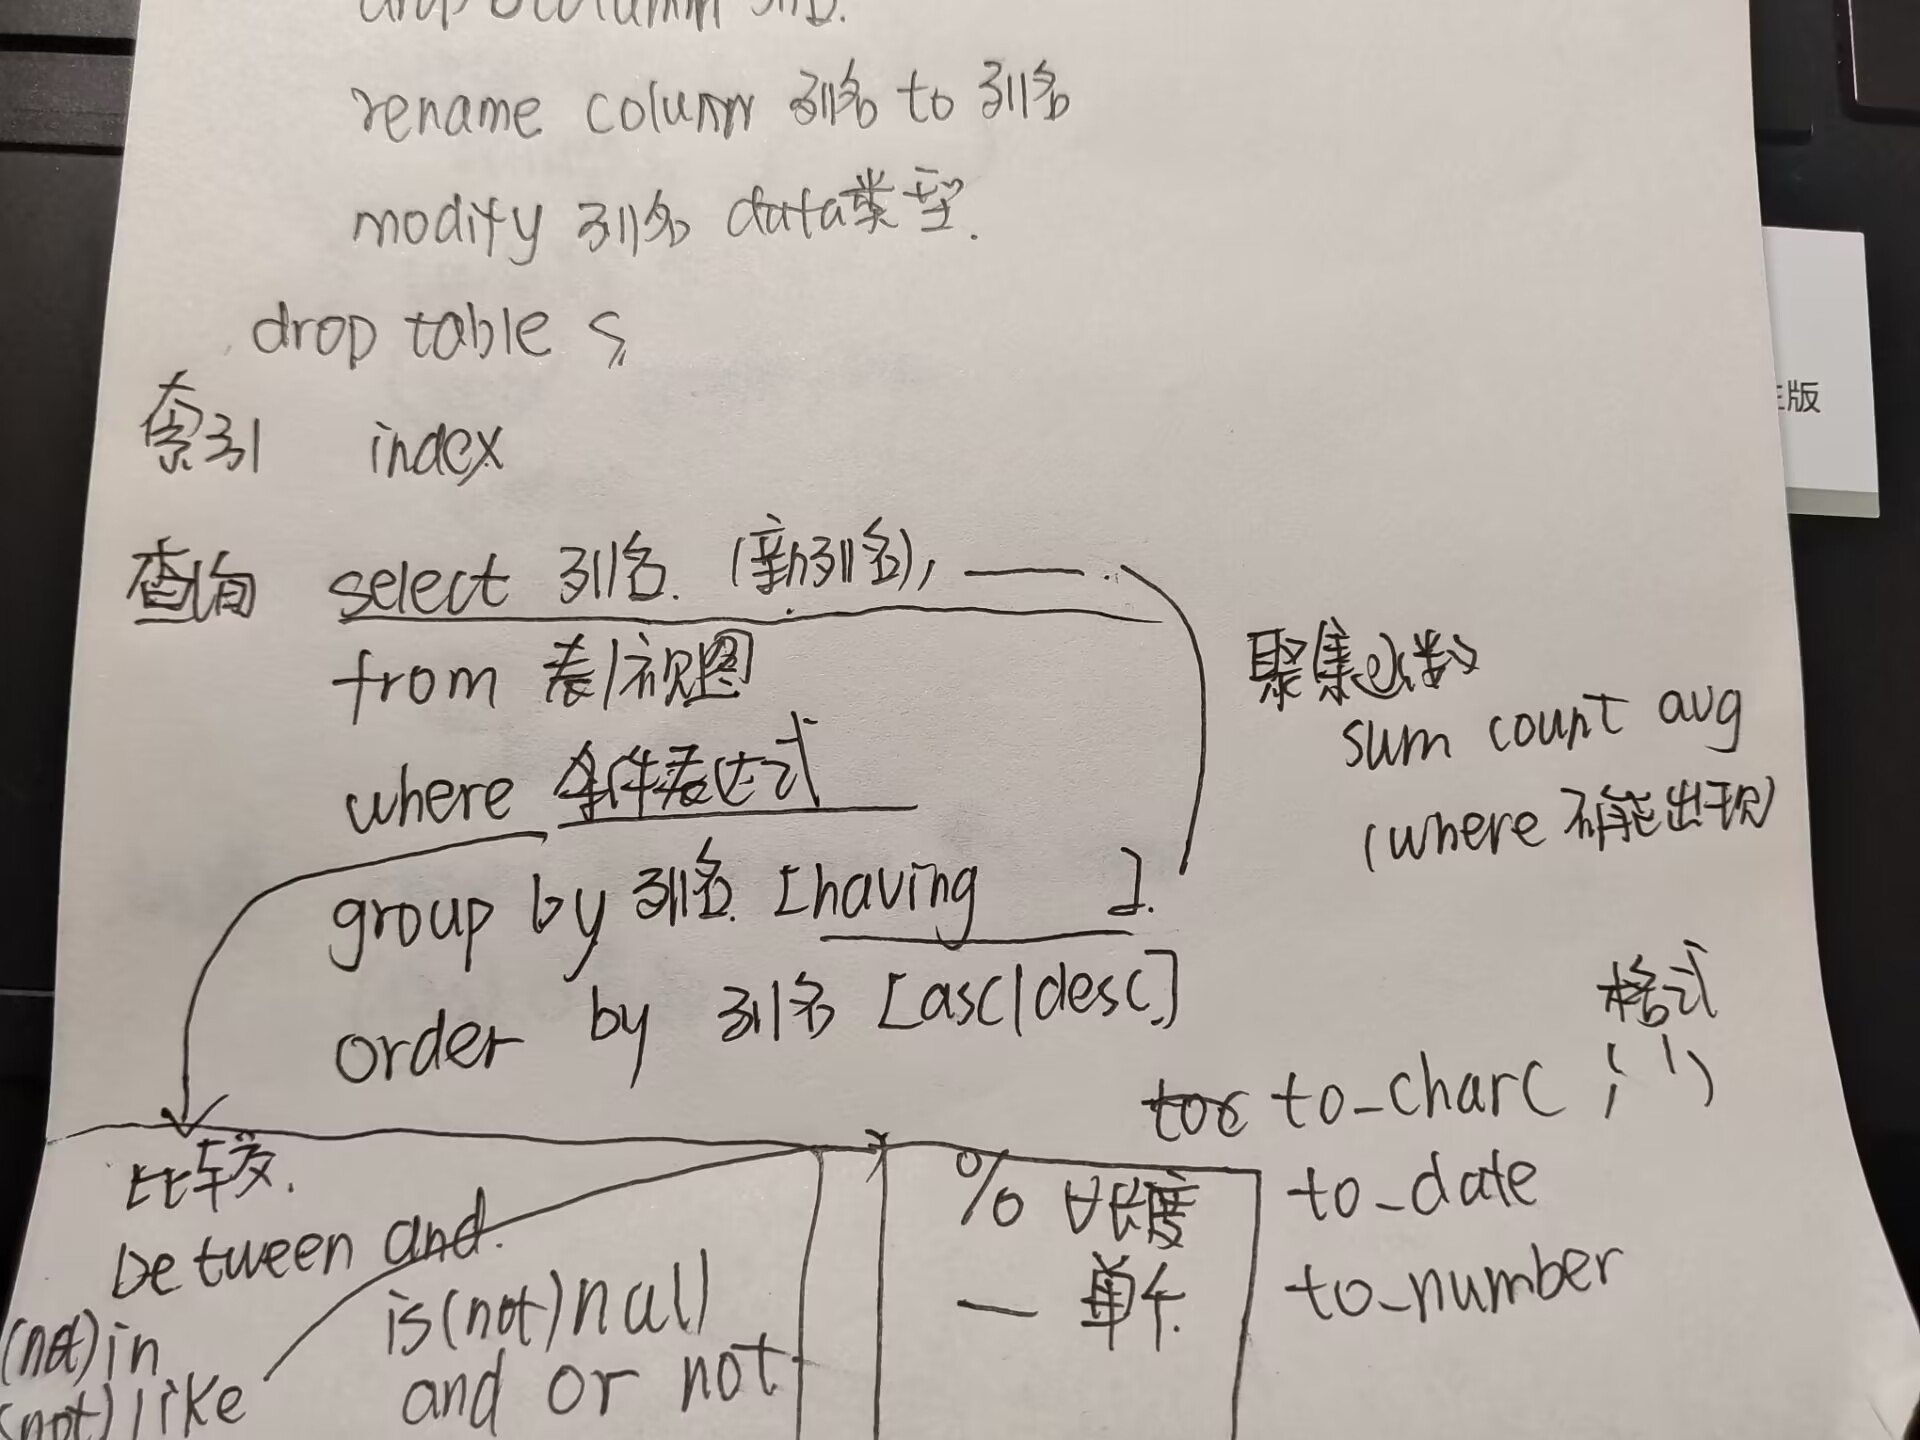 rename column 列名 to 列名
modify 列名 data类型.
drop table s;
索引 index
查询 select 列名. (新列名),
from 表/视图
where 条件表达式
group by 列名. [having ].
order by 列名 [asc|desc]
聚集函数
sum count avg
(where 不能出现)
格式
to_char( , ' ')
to_date
to_number
比较.
between and.
(not)in
(not)like
is(not)null
and or not
% 长度
_ 单个.
版